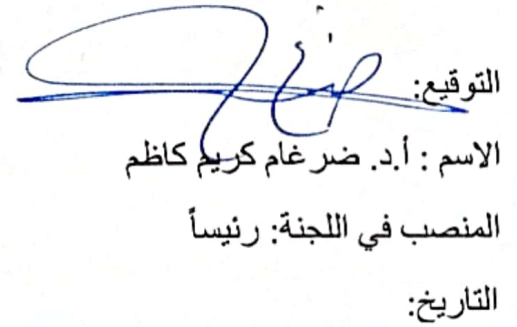 التوقيع:
الاسم : أ.د. ضرغام كريم كاظم
المنصب في اللجنة: رئيساً
التاريخ: